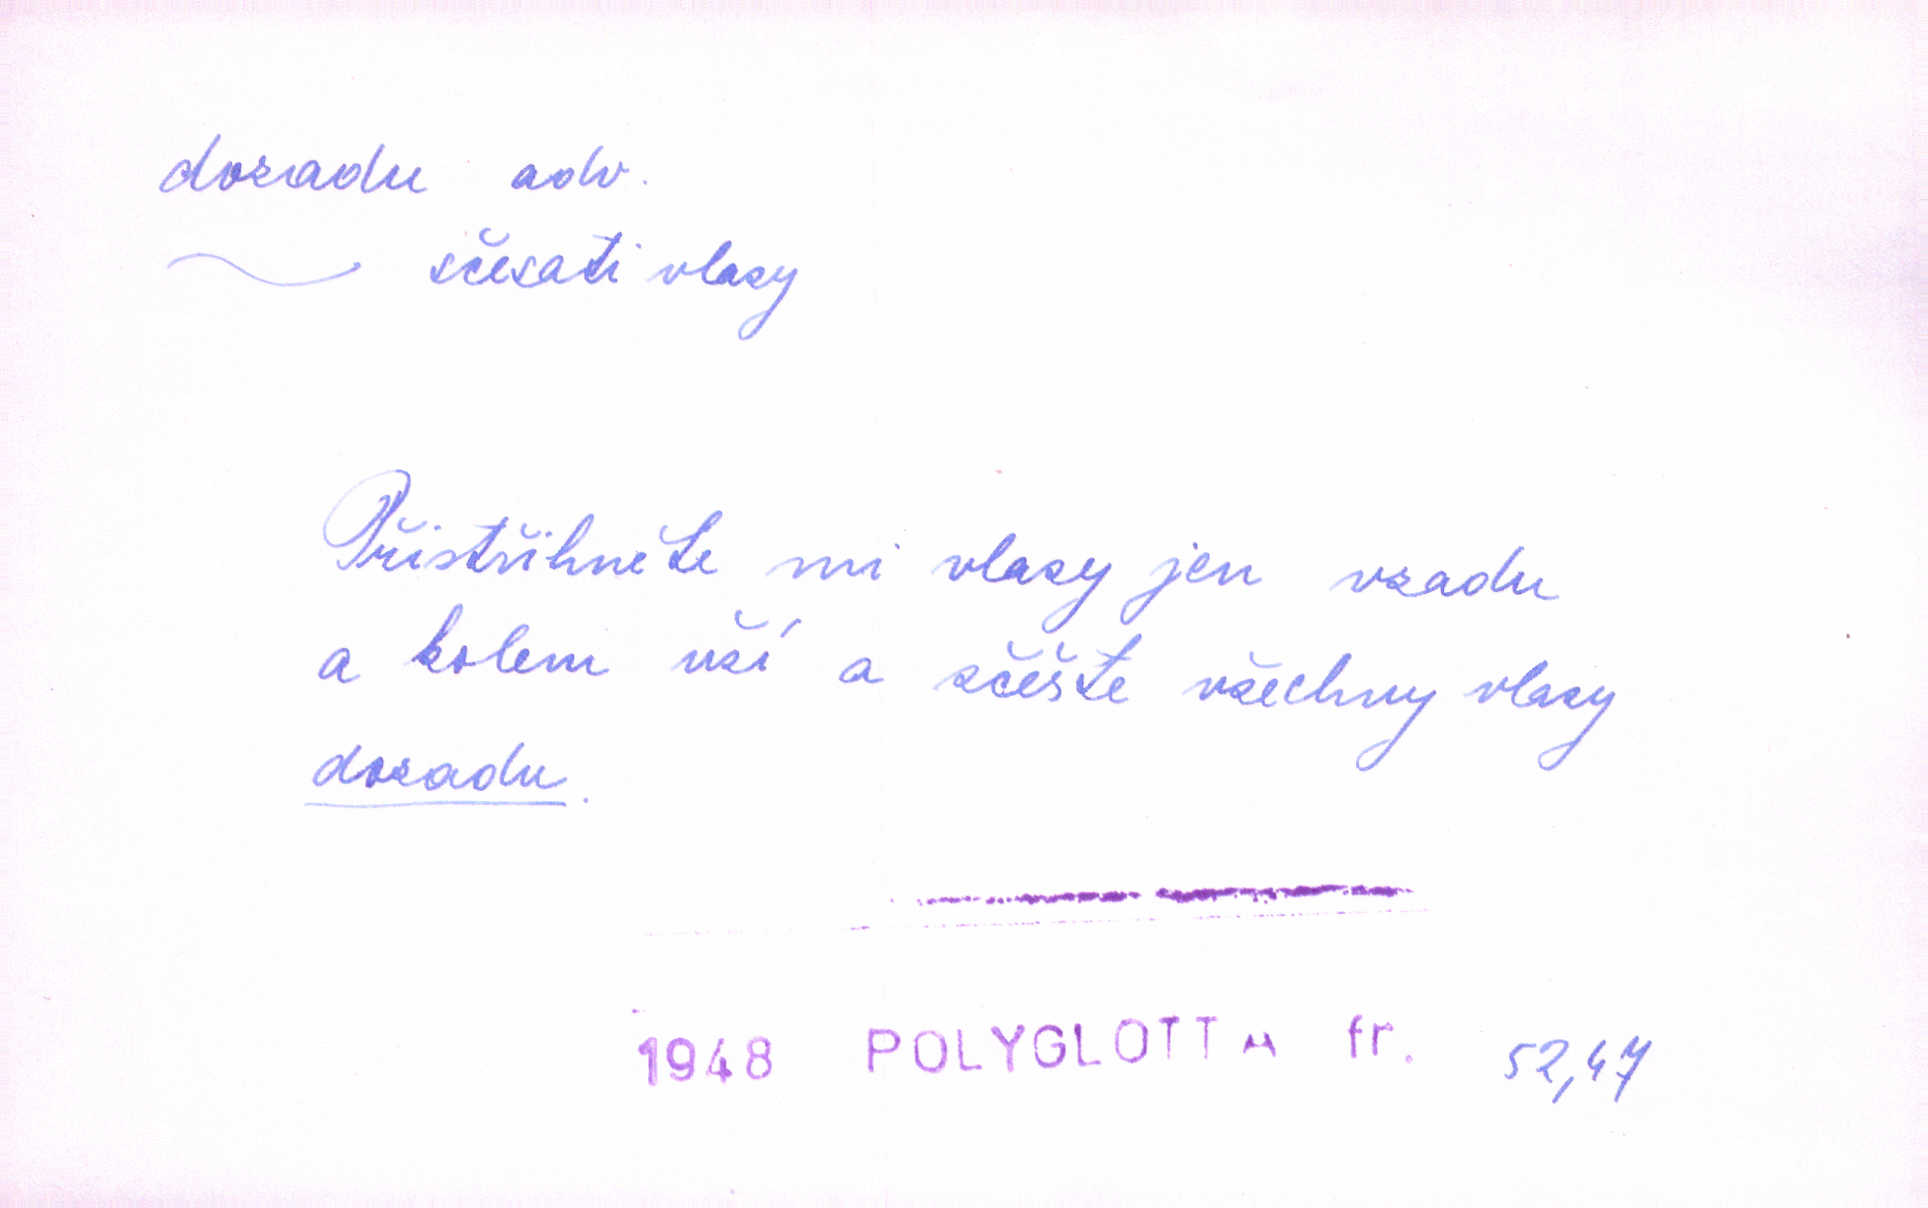 dozadu adv.
~ sčesati vlasy
Přistřihněte mi vlasy jen vzadu
a kolem uší a sčešte všechny vlasy
dozadu.
1948 POLYGLOTTA fr. 52,47